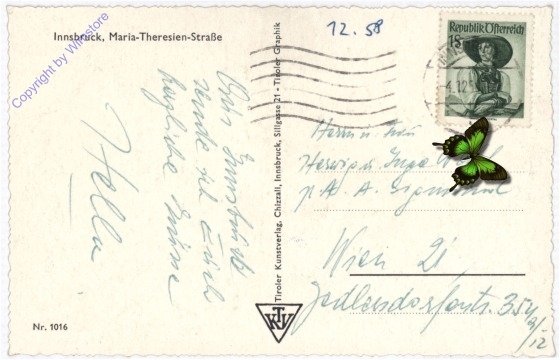 Innsbruck, Maria-Theresien-Straße
Copyright by Winstore
12.58
Republik Österreich
1 S
Aus Innsbruck
sende ich Euch
herzliche Grüsse
Hella
Tiroler Kunstverlag, Chizzali, Innsbruck, Sillgasse 21 - Tiroler Graphik
Herrn u. Frau
Herwig u. Inge
p. A. A.
Wien 21
35
Nr. 1016
TKV